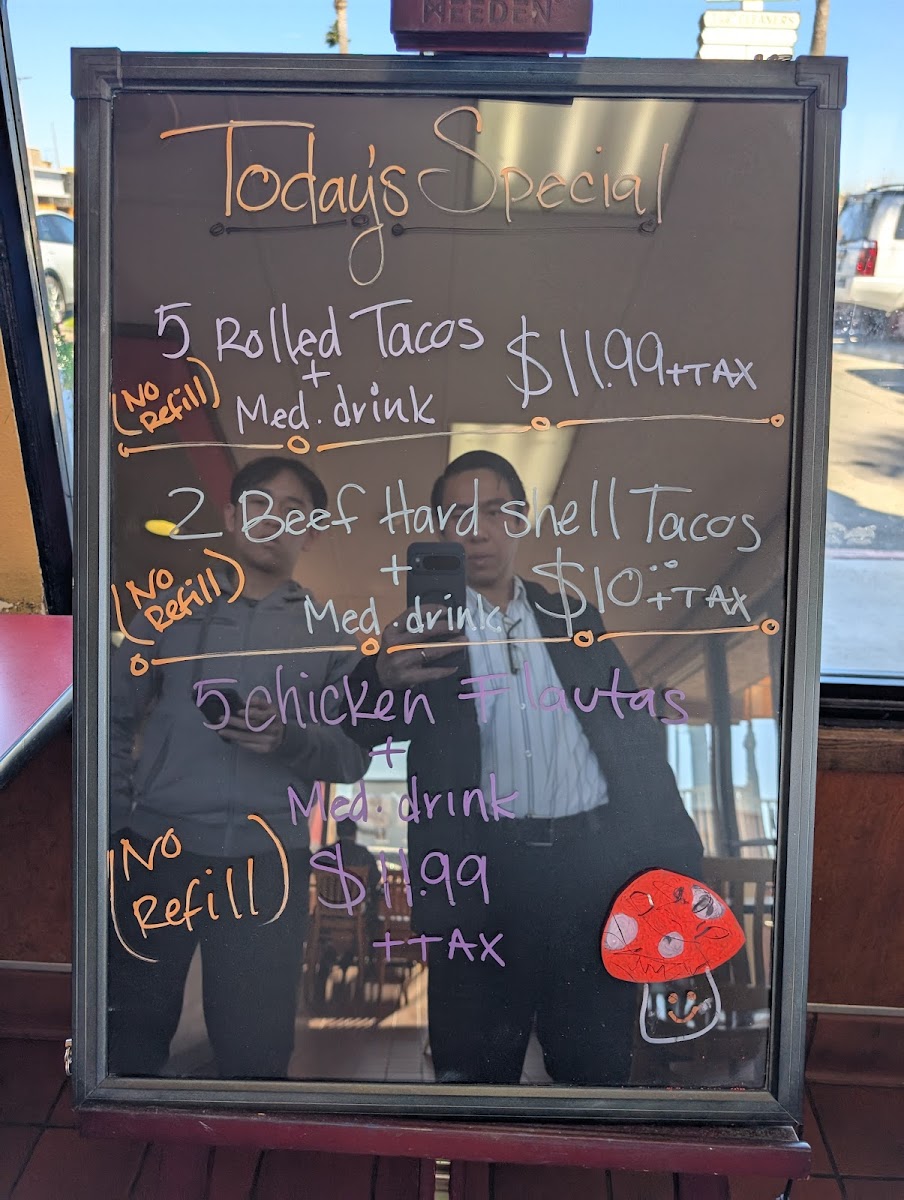 WEEDEN
Today's Special
5 Rolled Tacos
+
Med. drink
$11.99 +TAX
(No Refill)
2 Beef Hard Shell Tacos
+
Med. drink
$10.. +TAX
(No Refill)
5 chicken Flautas
+
Med. drink
$11.99
+TAX
(No
Refill)
CLEANERS